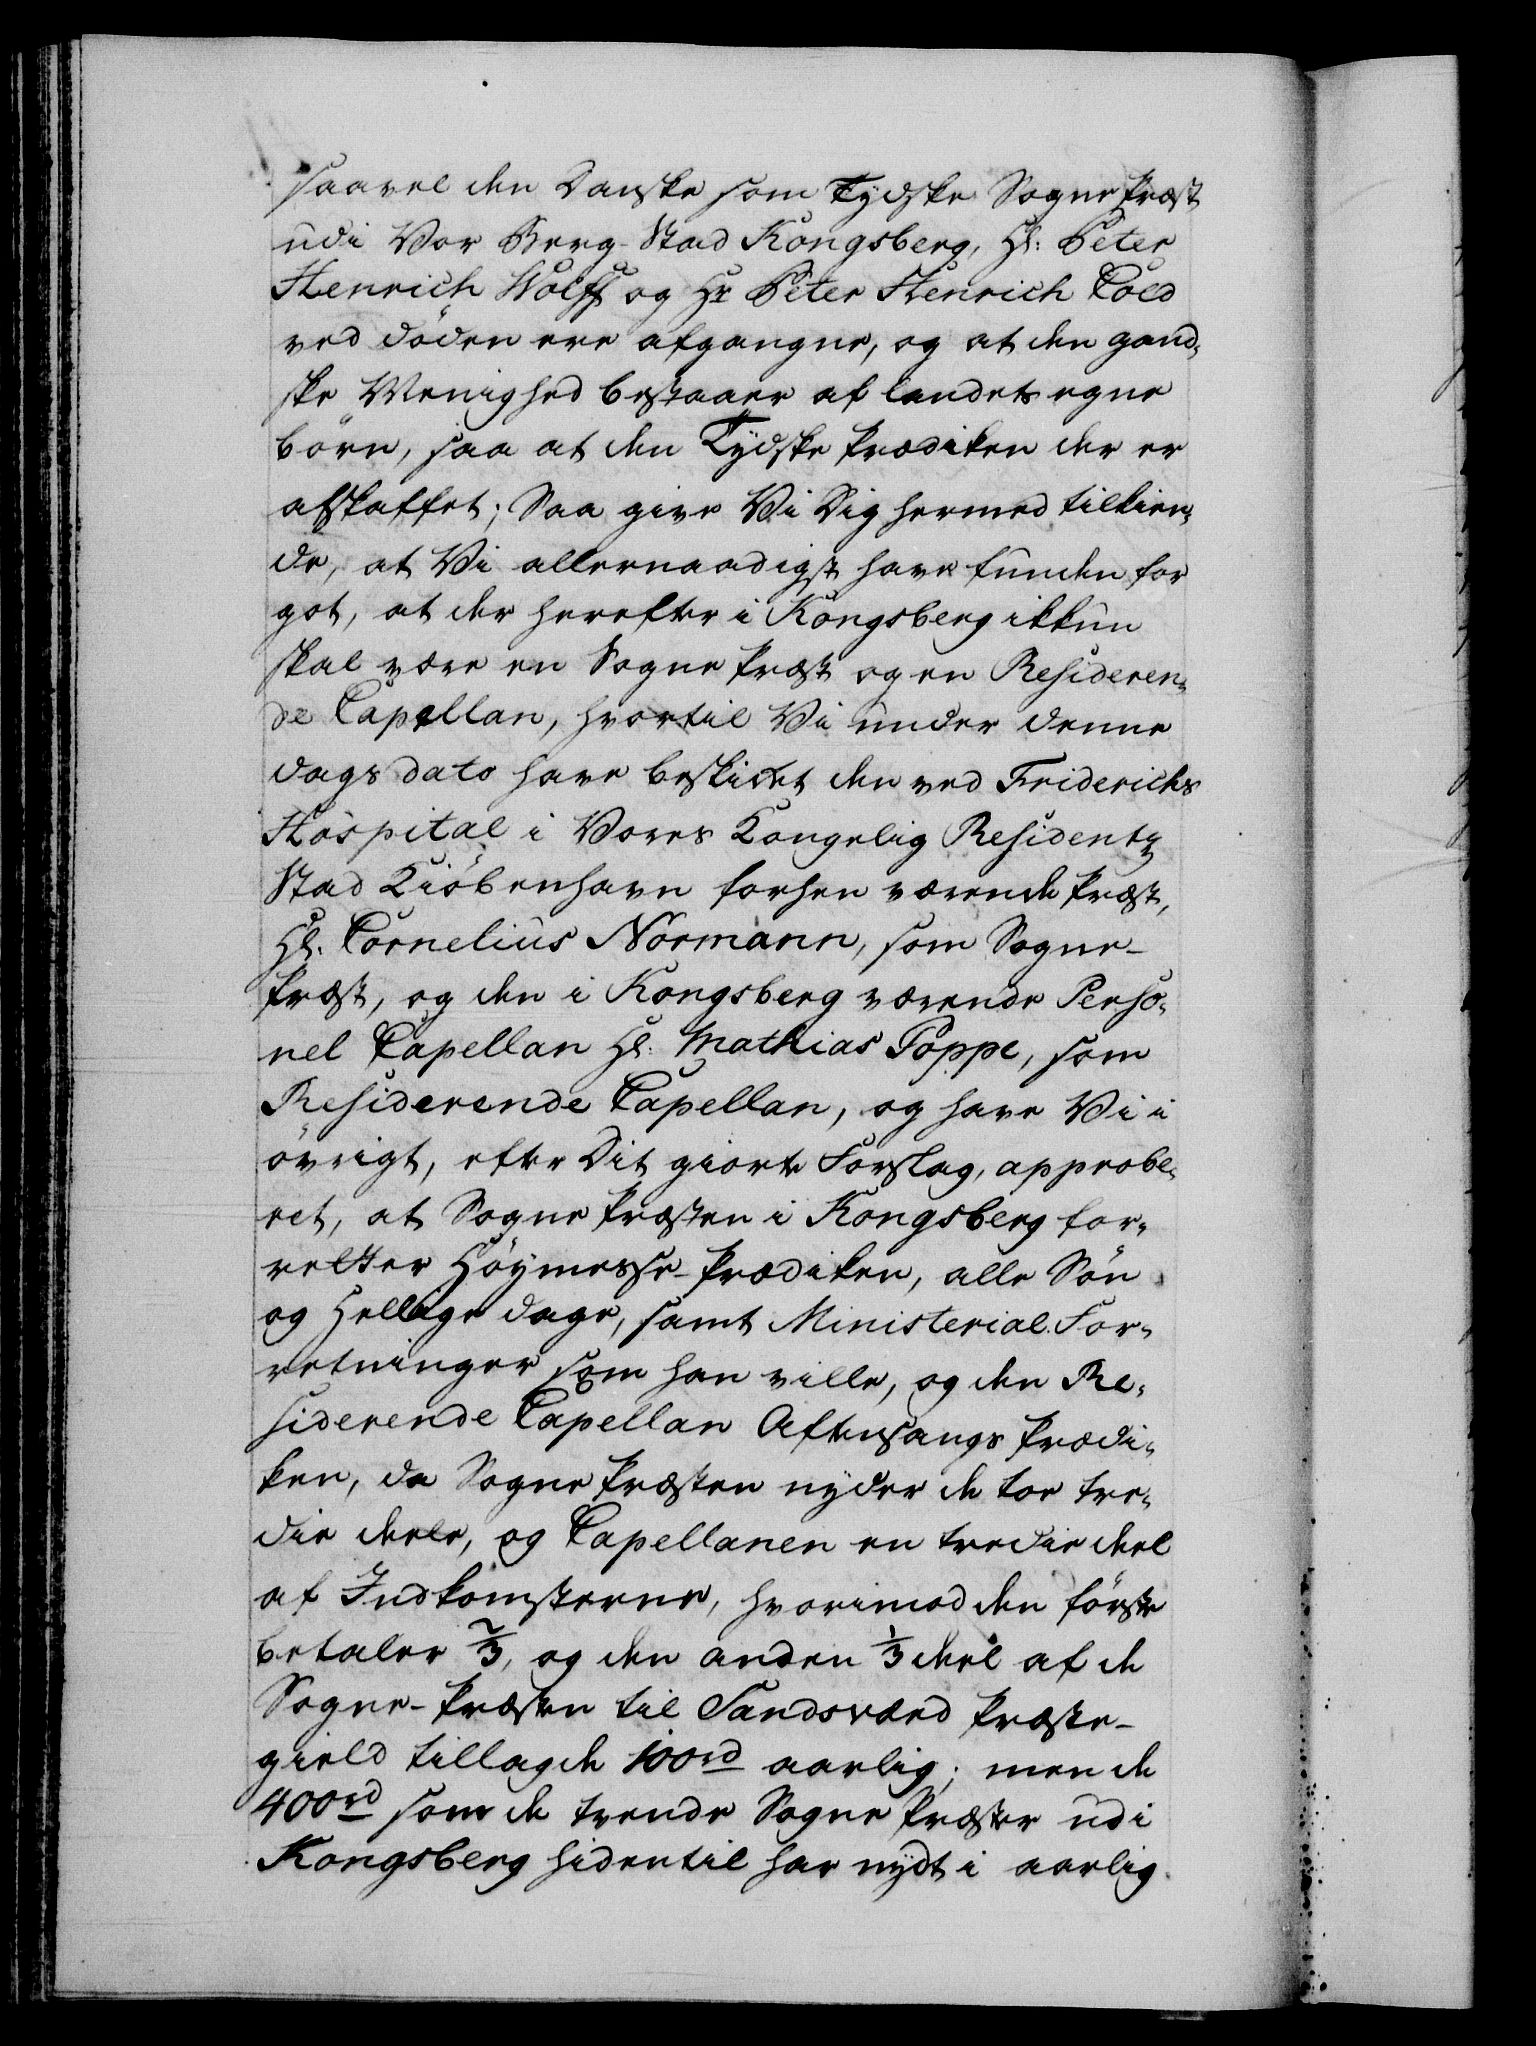 saavel den Danske som Tydske Sogne Præst
udi Vor Berg-Stad Kongsberg, Hr: Peter
Henrich Wolff og Hr Peter Henrich Cold
ved döden ere afgangne, og at den gand-
ske Menighed bestaaer af landets egne
börn, saa at den Tydske Prædiken der er
afskaffet; Saa give Vi Dig hermed tilkien-
de, at Vi allernaadigst have funden for
got, at der herefter i Kongsberg ikkun
skal være en Sogne Præst og en Resideren-
de Capellan, hvortil Vi under denne
dags dato have beskicket den ved Friderichs
Hospital i Vores Kongelig Residentz
Stad Kiöbenhavn forhen værende Præst,
Hr. Cornelius Normann, som Sogne-
Præst, og den i Kongsberg værende Perso-
nel Capellan Hr. Mathias Poppe, som
Residerende Capellan, og have Vi i
övrigt, efter Dit giorte Forslag, approbe-
ret, at Sogne Præsten i Kongsberg for-
retter Höymesse-Prædiken, alle Sön
og Hellige dage, samt Ministerial For-
retninger som han ville, og den Re-
siderende Capellan Aftensangs Prædi-
ken, da Sogne Præsten nyder de toe tre-
die deele, og Capellanen en tredie deel
af Indkomsterne, hvorimod den förste
betaler 2/3, og den anden 1/3 deel af de
Sogne-Præsten til Sandsværd Præste-
gield tillagde 100rd aarlig; men de
400rd som de tvende Sogne Præster udi
Kongsberg hidentil har nydt i aarlig